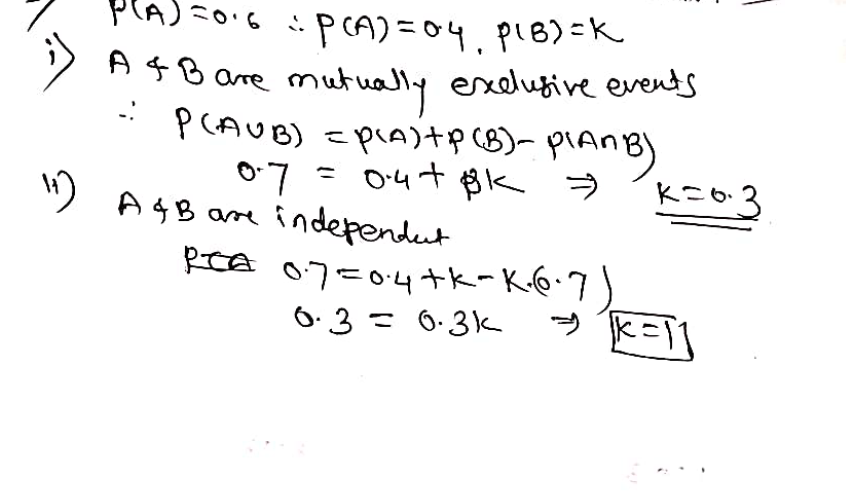 P(A)=0.6 ∴ P(A)=0.4, P(B)=K
i) A & B are mutually exclusive events
∴ P(A∪B) = P(A)+P(B)- P(A∩B)
0.7 = 0.4+ K ⇒ K=0.3
ii) A & B are independent
0.7=0.4+K-K.(0.7)
0.3 = 0.3K ⇒ K=1